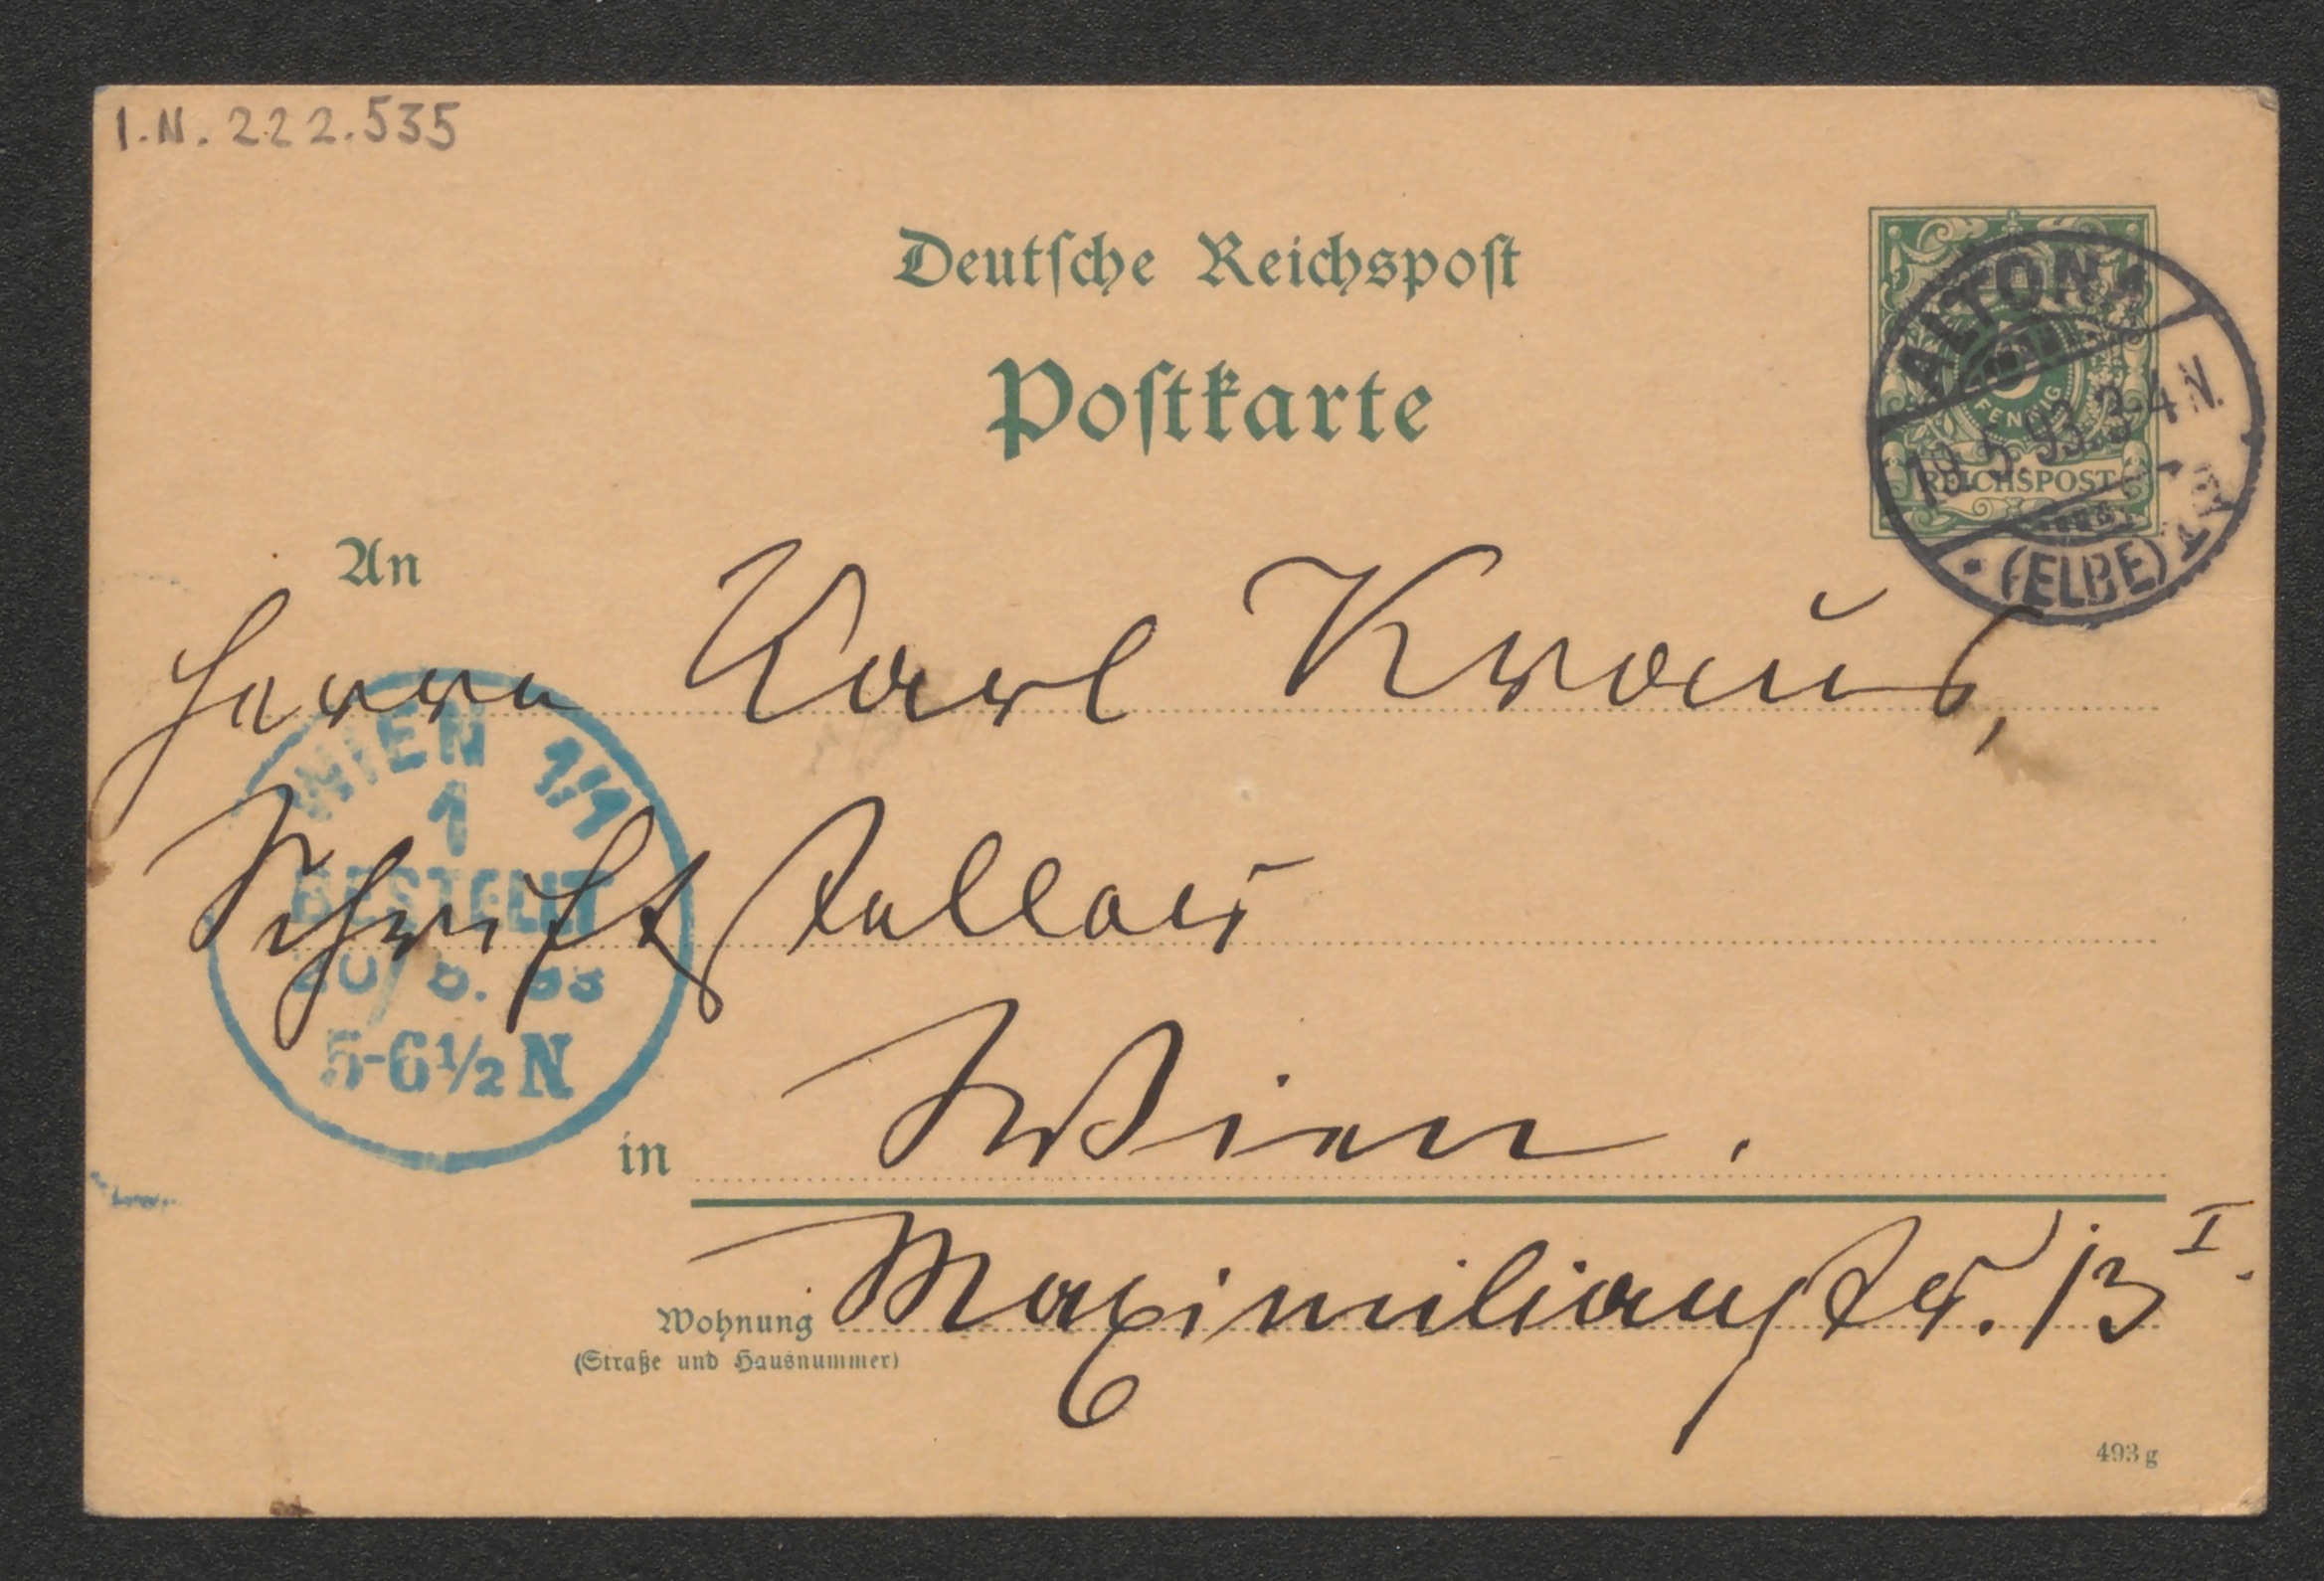 I.N. 222.535
Deutsche Reichspost
Postkarte
PFENNIG
REICHSPOST
ALTONA
5.93.3-4N.
* (ELBE)
An
Herrn Karl Kraus,
WIEN 1/1
1
BESTELLT
5-6½N
Schriftsteller
in Wien.
Wohnung Maximilianstr. 13 I.
(Straße und Hausnummer)
493 g